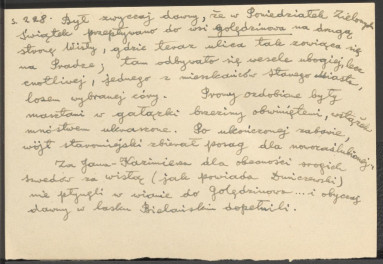 s. 228. Był zwyczaj dawny, że w Poniedziałek Zielonych
Świątek przepływano do wsi Golędzinowa na drugą
stronę Wisły, gdzie teraz ulica tak zowiąca się
na Pradze; tam odbywało się wesele ubogiej, lecz
cnotliwej, jednego z mieszkańców starego Miasta,
losem wybranej córy. Promy ozdobione były
masztami w gałązki brzeziny obwinięteni, wstążek
mnóstwem ukraszone. Po ukończonej zabawie,
wójt staromiejski zbierał posag dla nowozaślubionej.
Za Jana-Kazimierza dla obecności srogich
szwedów za wisłą (jak powiada Dmiczewski)
nie płynęli w wianie do Golędzinowa ... i obyczaj
dawny w lasku Bielańskim dopełnili.